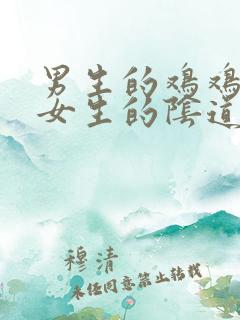 男生的鸡鸡
女生的陰道
穆清
未经同意禁止转载